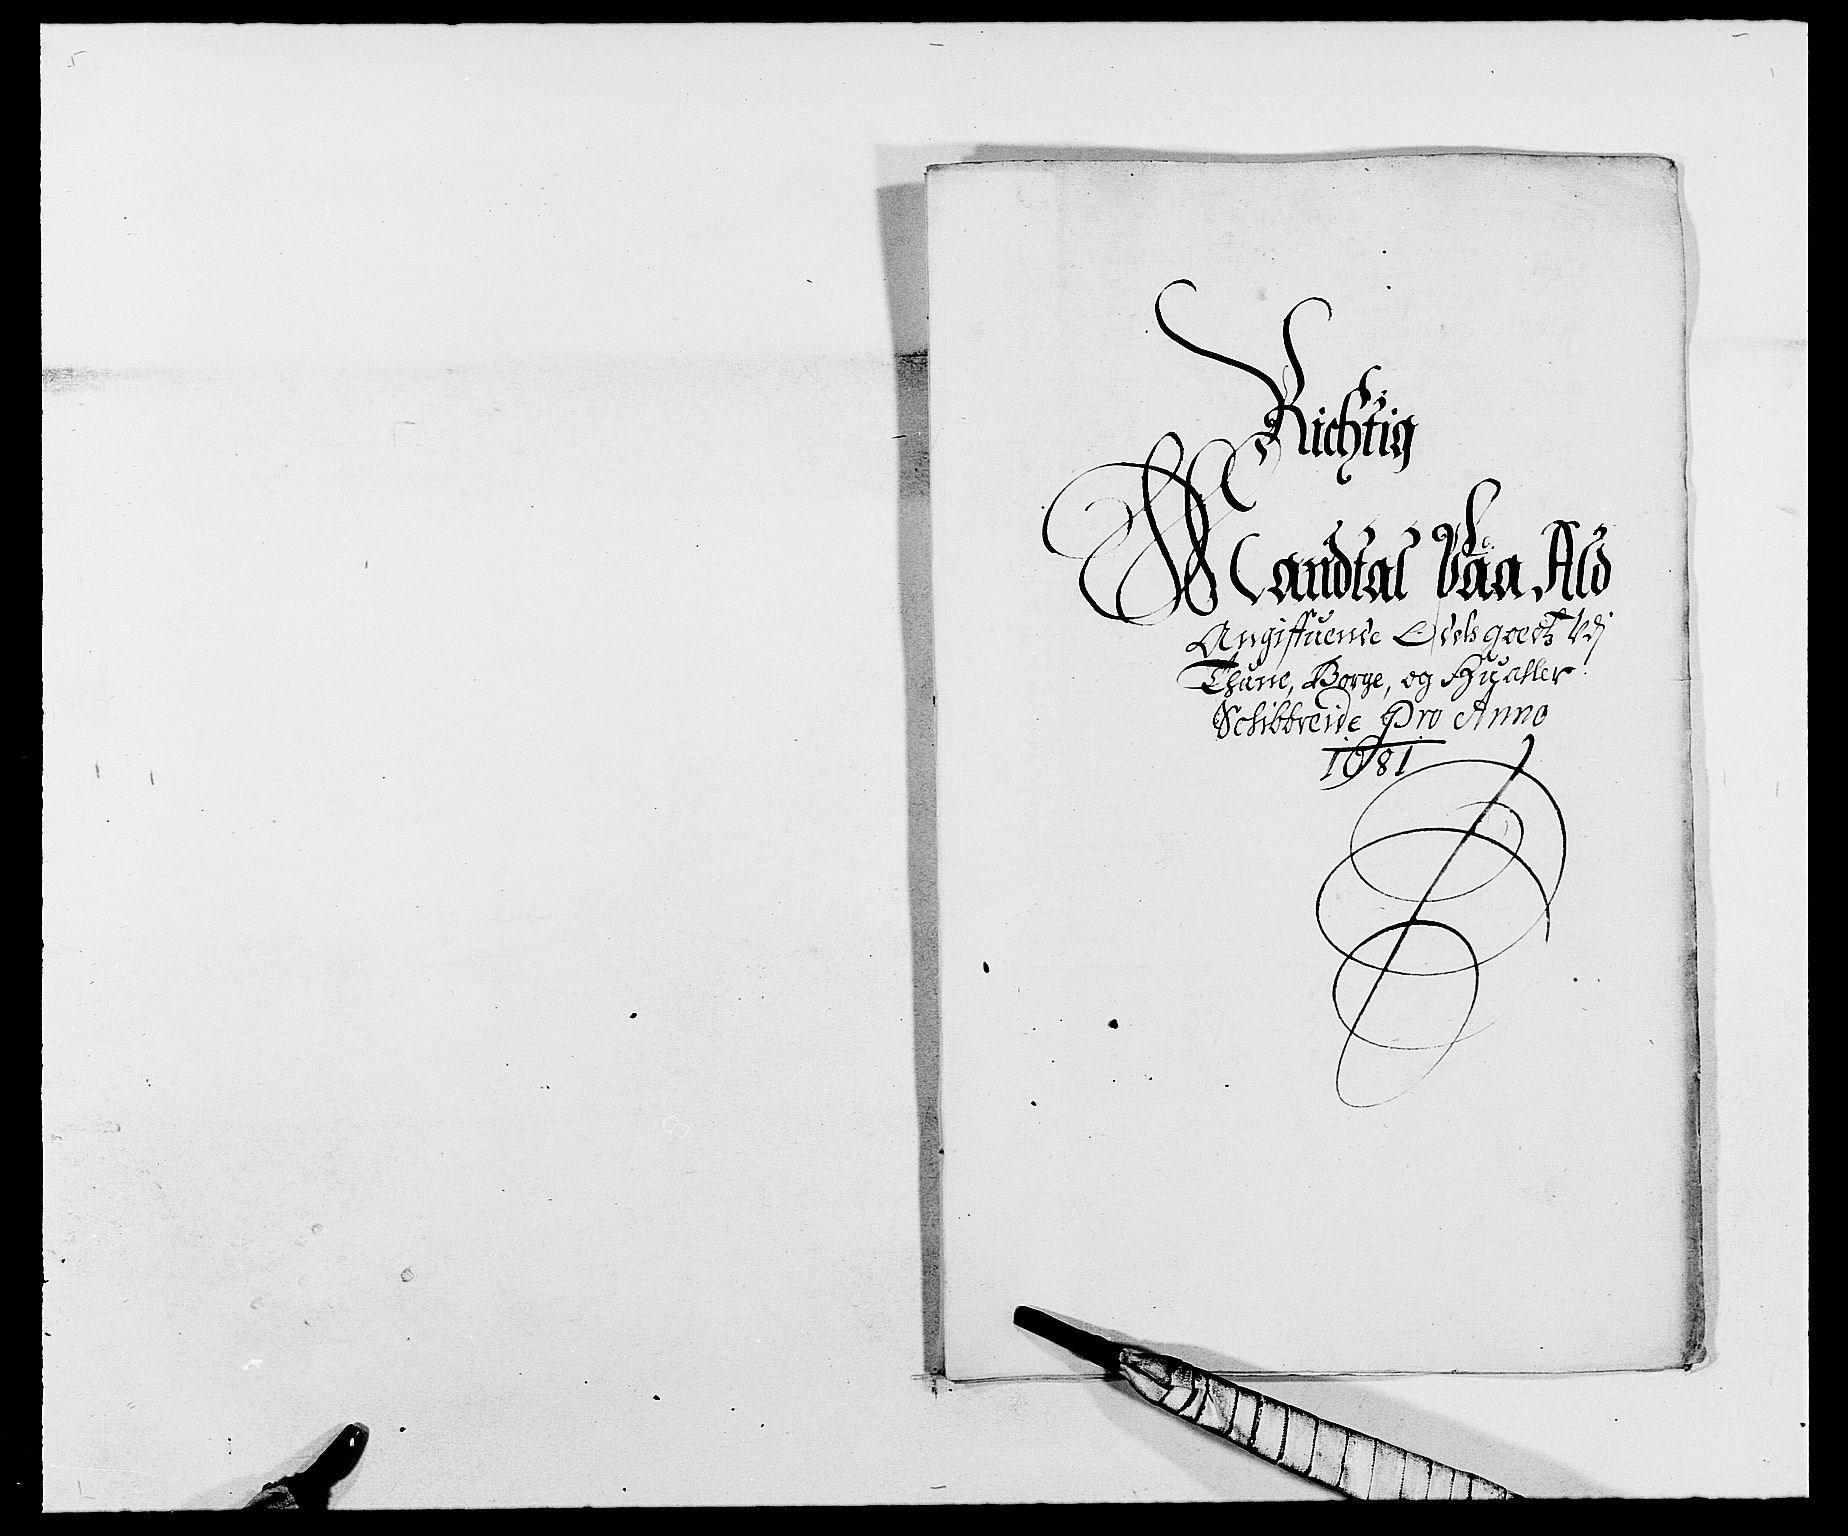 Richtig
Mandtal Paa Ald
Angiffuende Odelsgoedtz Udj
Thune, Borge, og Hualler
Schibbreide Pro Anno
1681